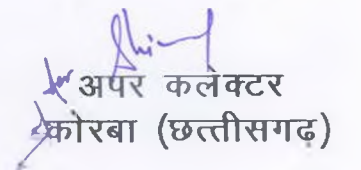 अपर कलेक्टर
कोरबा (छत्तीसगढ़)